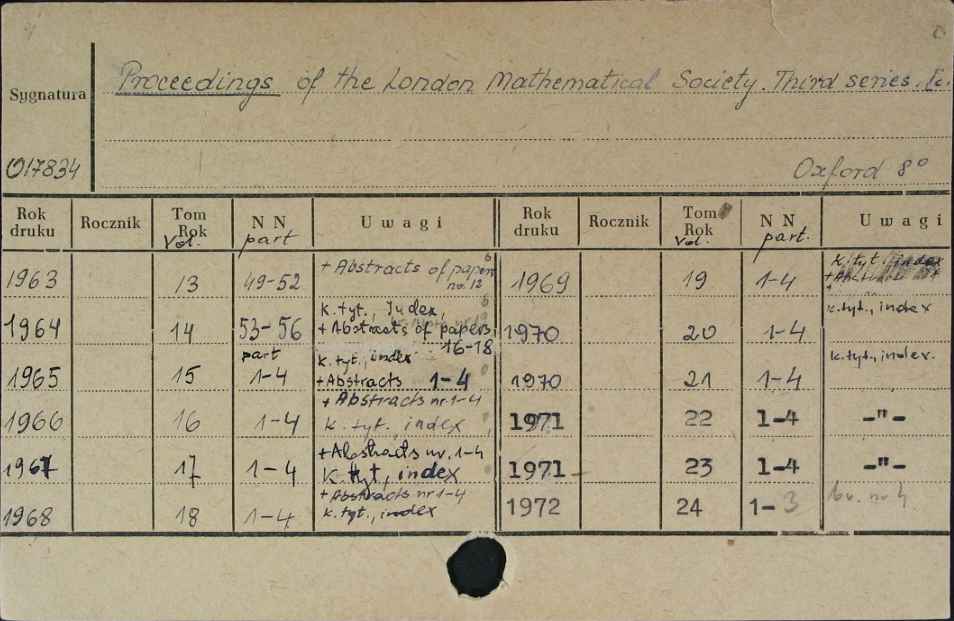 Sygnatura
Proceedings of the London Mathematical Society. Third series.
O17834
Oxford 8°
Rok druku Rocznik Tom Rok Vol. N N part Uwagi Rok druku Rocznik Tom Rok Vol. N N part. Uwagi
1963 13 49-52 + Abstracts of papers no. 12 1969 19 1-4 k. tyt. index
1964 14 53-56 k. tyt., Index, + Abstracts of papers, 16-18 1970 20 1-4 k. tyt., index
1965 15 part 1-4 k. tyt., index + Abstracts 1-4 1970 21 1-4 k. tyt., index.
1966 16 1-4 + Abstracts nr. 1-4 k. tyt. index 1971 22 1-4 -"-
1967 17 1-4 + Abstracts nr. 1-4 k. tyt, index 1971 23 1-4 -"-
1968 18 1-4 + Abstracts nr 1-4 k. tyt., index 1972 24 1-3 nr 4